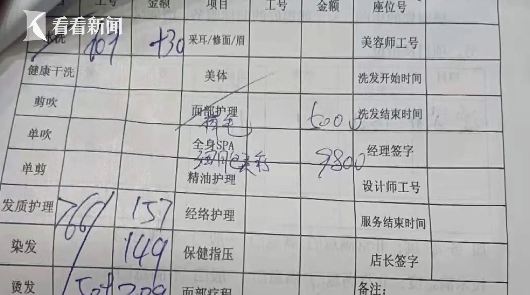 看看新闻
项目 工号 金额 项目 工号 金额 座位号
洗 101 +30 采耳/修面/眉 美容师工号
健康干洗 美体 洗发开始时间
剪吹 面部护理 6000 洗发结束时间
单吹 全身SPA 经理签字
单剪 精油护理 9800 设计师工号
发质护理 157 经络护理 服务结束时间
染发 149 保健指压 店长签字
烫发 209 面部疗程 备注: